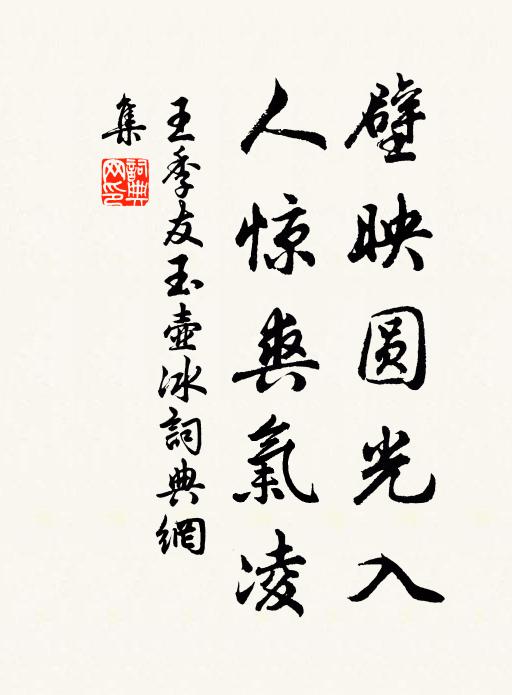 壁映圆光入
人惊爽氣凌
王季友玉壺冰詞典網
集
詞典
网印